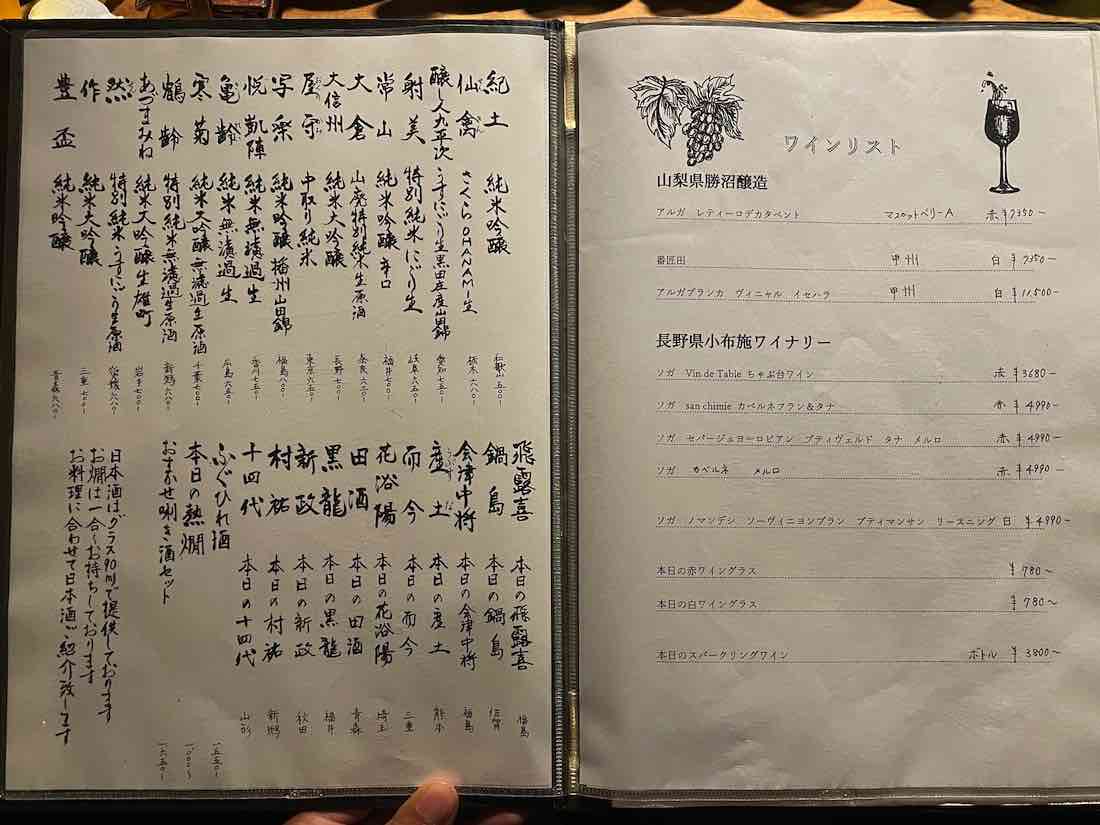 紀土 純米吟醸 和歌山 五〇〇-
仙禽 さくらOHANAMI生 栃木 六八〇-
醸し人九平次 うすにごり生黒田庄産山田錦 愛知 七五〇-
射美 特別純米にごり生 岐阜 六五〇-
常山 純米吟醸 辛口 福井 七〇〇-
大倉 山廃特別純米生原酒 奈良 六五〇-
大信州 純米大吟醸 長野 七〇〇-
屋守 中取り純米 東京 六五〇-
写楽 純米吟醸 播州山田錦 福島 八〇〇-
悦凱陣 純米無濾過生 香川 七五〇-
亀齢 純米無濾過生 広島 六五〇-
寒菊 純米大吟醸無濾過生原酒 千葉 七〇〇-
鶴齢 特別純米無濾過生原酒 新潟 六八〇-
あづまみね 純米大吟醸生雄町 岩手 七〇〇-
然 特別純米うすにごり生原酒 六八〇-
作 純米大吟醸 三重 七〇〇-
豊盃 純米吟醸 六八〇-
飛露喜 本日の飛露喜 福島
鍋島 本日の鍋島 佐賀
会津中将 本日の会津中将 福島
産土 本日の産土 熊本
而今 本日の而今 三重
花浴陽 本日の花浴陽 埼玉
田酒 本日の田酒 青森
黒龍 本日の黒龍 福井
新政 本日の新政 秋田
村祐 本日の村祐 新潟
十四代 本日の十四代 山形
ふぐひれ酒 一五五〇-
本日の熱燗 一〇〇〇〜
おまかせ唎き酒セット 一六五〇-
日本酒はグラス90mlで提供しております
お燗は一合〜お持ちしております
お料理に合わせて日本酒ご紹介致します
ワインリスト
山梨県勝沼醸造
アルガ レティーロデカタベント マスカットベリーA 赤 ¥7350〜
番匠田 甲州 白 ¥7350〜
アルガブランカ ヴィニャル イセハラ 甲州 白 ¥11,500-
長野県小布施ワイナリー
ソガ Vin de Table ちゃぶ台ワイン 赤 ¥3680-
ソガ san chimie カベルネフラン&タナ 赤 ¥4990-
ソガ セパージュヨーロピアン プティヴェルド タナ メルロ 赤 ¥4990〜
ソガ カベルネ メルロ 赤 ¥4,990-
ソガ ノマンデシ ソーヴィニヨンブラン プティマンサン リースニング 白 ¥4990-
本日の赤ワイングラス ¥780-
本日の白ワイングラス ¥780〜
本日のスパークリングワイン ボトル ¥3800〜